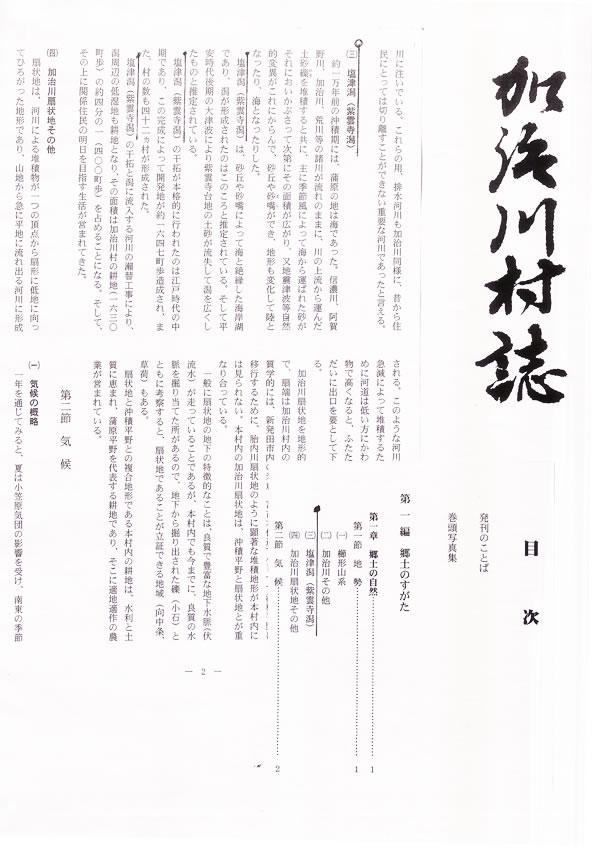 加治川村誌
目次
発刊のことば
巻頭写真集
第一編 郷土のすがた
第一章 郷土の自然……1
第一節 地勢……1
㈠ 櫛形山系
㈡ 加治川その他
㈢ 塩津潟(紫雲寺潟)
㈣ 加治川扇状地その他
第二節 気候……2
川に注いでいる。これらの用、排水河川も加治川同様に、昔から住
民にとっては切り離すことができない重要な河川であったと言える。
㈢ 塩津潟(紫雲寺潟)
約一万年前の沖積期には、蒲原の地は海であった。信濃川、阿賀
野川、加治川、荒川等の諸川が流れのままに、川の上流から運んだ
土砂礫を堆積すると共に、主に季節風によって海から運ばれた砂が
それにおいかぶさって次第にその面積が広がり、又地震津波等自然
的変異がこれにからんで、砂丘や砂嘴ができ、地形も変化して陸と
なったり、海となったりした。
塩津潟(紫雲寺潟)は、砂丘や砂嘴によって海と絶縁した海岸湖
であり、潟が形成されたのはこのころと推定されている。そして平
安時代後期の大津波により紫雲寺台地の土砂が流失して潟を広くし
たものと推定されている。
塩津潟(紫雲寺潟)の干拓が本格的に行われたのは江戸時代の中
期であり、この完成によって開発地が約一六四七町歩造成され、ま
た、村の数も四十二ヵ村が形成された。
塩津潟(紫雲寺潟)の干拓と潟に流入する河川の瀬替工事により、
潟周辺の低湿地も耕地となり、その面積は加治川村の耕地(一六三〇
町歩)の約四分の一(四〇〇町歩)を占めることになる。そして、
その上に関係住民の明日を目指す生活が営まれてきた。
㈣ 加治川扇状地その他
扇状地は、河川による堆積物が一つの頂点から扇形に低地に向っ
てひろがった地形であり、山地から急に平地に流れ出る河川に形成
される。このような河川
急減によって堆積するた
めに河道は低い方にかわ
物で高くなると、ふたた
だいに出口を要として下
る。
加治川扇状地を地形的
で、扇端は加治川村内の
質学的には、新発田市内の
移行するために、胎内川扇状地のように顕著な堆積地形が本村内に
は見られない。本村内の加治川扇状地は、沖積平野と扇状地とが重
なり合っている。
一般に扇状地の地下の特徴的なことは、良質で豊富な地下水脈(伏
流水)が走っていることであるが、本村内でも今までに、良質の水
脈を掘り当てた所があるので、地下から掘り出された礫(小石)と
ともに考察すると、扇状地であることが立証できる地域(向中条、
草荷)もある。
扇状地と沖積平野との複合地形である本村内の耕地は、水利と土
質に恵まれ、蒲原平野を代表する耕地であり、そこに適地適作の農
業が営まれている。
第二節 気候
㈠ 気候の概略
一年を通じてみると、夏は小笠原気団の影響を受け、南東の季節
— 2 —